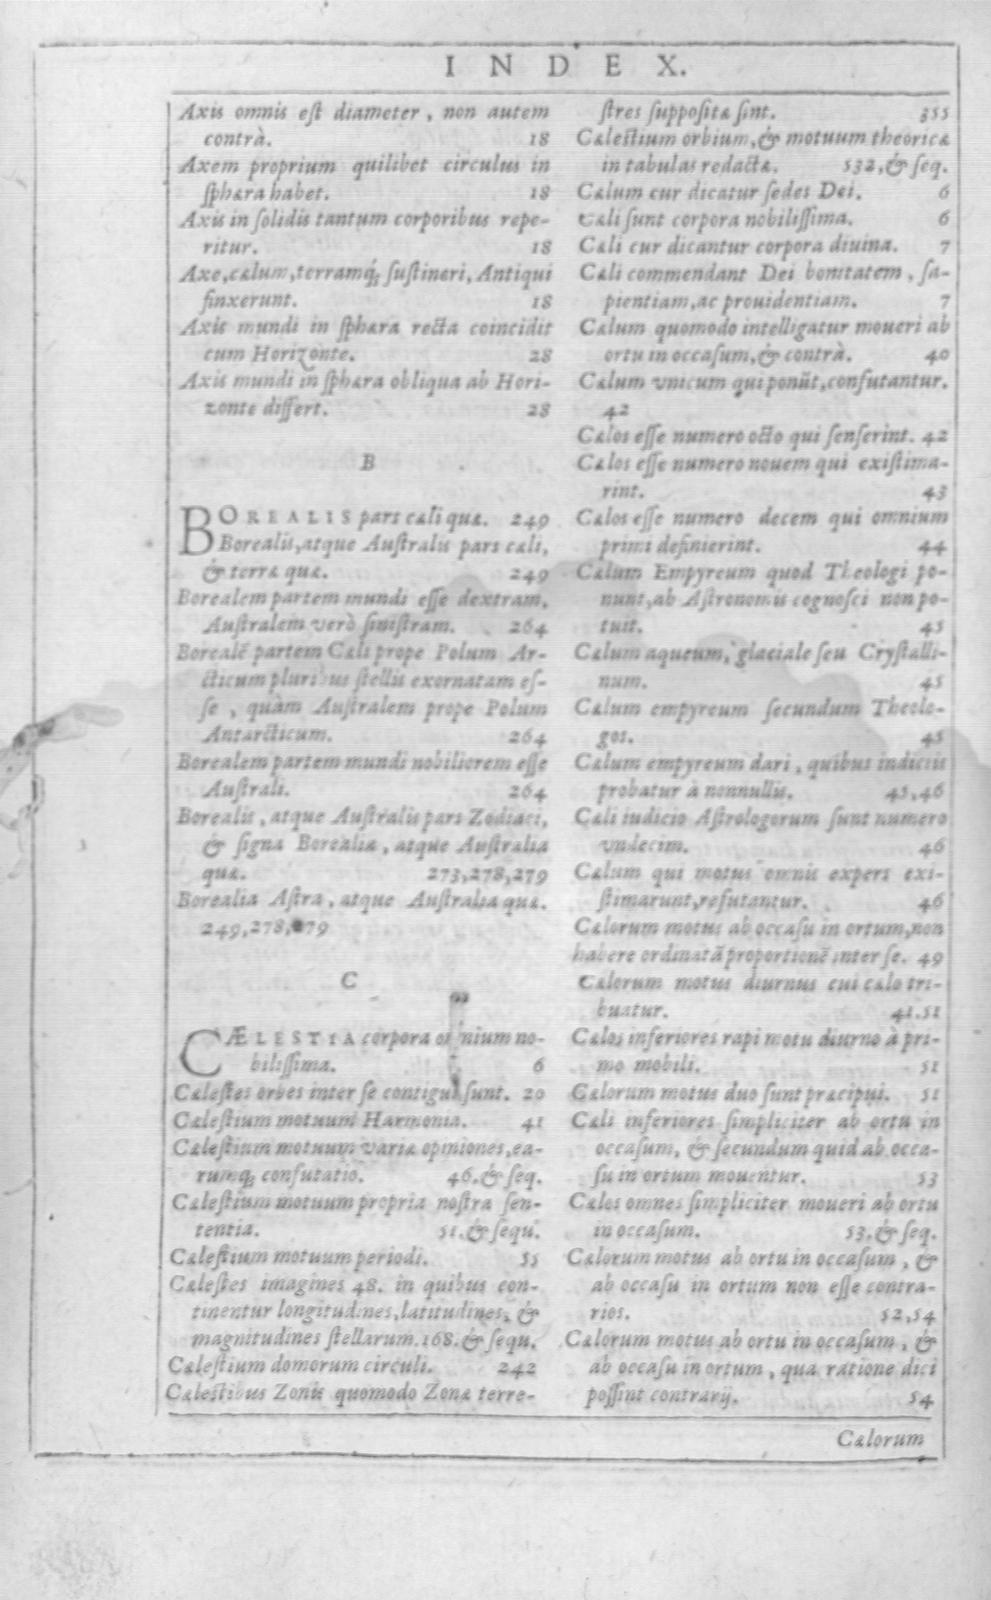 INDEX.
Axis omnis est diameter, non autem
contrà. 18
Axem proprium quilibet circulus in
sphæra habet. 18
Axis in solidis tantum corporibus repe-
ritur. 18
Axe, cælum, terramq́; sustineri, Antiqui
finxerunt. 18
Axis mundi in sphæra recta coincidit
cum Horizonte. 28
Axis mundi in sphæra obliqua ab Hori-
zonte differt. 28
B
BOREALIS pars cæli quæ. 249
Borealis, atque Australis pars cæli,
& terræ quæ. 249
Borealem partem mundi esse dextram,
Australem verò sinistram. 264
Borealē partem Cæli prope Polum Ar-
cticum pluribus stellis exornatam es-
se, quàm Australem prope Polum
Antarcticum. 264
Borealem partem mundi nobiliorem esse
Australi. 264
Borealis, atque Australis pars Zodiaci,
& signa Borealia, atque Australia
quæ. 273,278,279
Borealia Astra, atque Australia quæ.
249,278,279
C
CÆLESTIA corpora omnium no-
bilissima. 6
Cælestes orbes inter se contigui sunt. 20
Cælestium motuum Harmonia. 41
Cælestium motuum variæ opiniones, ea-
rumq; confutatio. 46. & seq.
Cælestium motuum propria nostra sen-
tentia. 51. & sequ.
Cælestium motuum periodi. 55
Cælestes imagines 48. in quibus con-
tinentur longitudines, latitudines, &
magnitudines stellarum. 168. & sequ.
Cælestium domorum circuli. 242
Cælestibus Zonis quomodo Zonæ terre-
stres suppositæ sint. 355
Cælestium orbium, & motuum theoricæ
in tabulas redactæ. 532, & seq.
Cælum cur dicatur sedes Dei. 6
Cæli sunt corpora nobilissima. 6
Cæli cur dicantur corpora diuina. 7
Cæli commendant Dei bonitatem, sa-
pientiam, ac prouidentiam. 7
Cælum quomodo intelligatur moueri ab
ortu in occasum, & contrà. 40
Cælum vnicum qui ponūt, confutantur.
42
Cælos esse numero octo qui senserint. 42
Cælos esse numero nouem qui existima-
rint. 43
Cælos esse numero decem qui omnium
primi definierint. 44
Cælum Empyreum quod Theologi po-
nunt, ab Astronomis cognosci non po-
tuit. 45
Cælum aqueum, glaciale seu Crystalli-
num. 45
Cælum empyreum secundum Theolo-
gos. 45
Cælum empyreum dari, quibus indicijs
probatur à nonnullis. 45,46
Cæli iudicio Astrologorum sunt numero
vndecim. 46
Cælum qui motus omnis expers exi-
stimarunt, refutantur. 46
Cælorum motus ab occasu in ortum, non
habere ordinatā proportionē inter se. 49
Cælorum motus diurnus cui cælo tri-
buatur. 41.51
Cælos inferiores rapi motu diurno à pri-
mo mobili. 51
Cælorum motus duo sunt præcipui. 51
Cæli inferiores simpliciter ab ortu in
occasum, & secundum quid ab occa-
su in ortum mouentur. 53
Cælos omnes simpliciter moueri ab ortu
in occasum. 53. & seq.
Cælorum motus ab ortu in occasum, &
ab occasu in ortum non esse contra-
rios. 52,54
Cælorum motus ab ortu in occasum, &
ab occasu in ortum, qua ratione dici
possint contrarij. 54
Cælorum